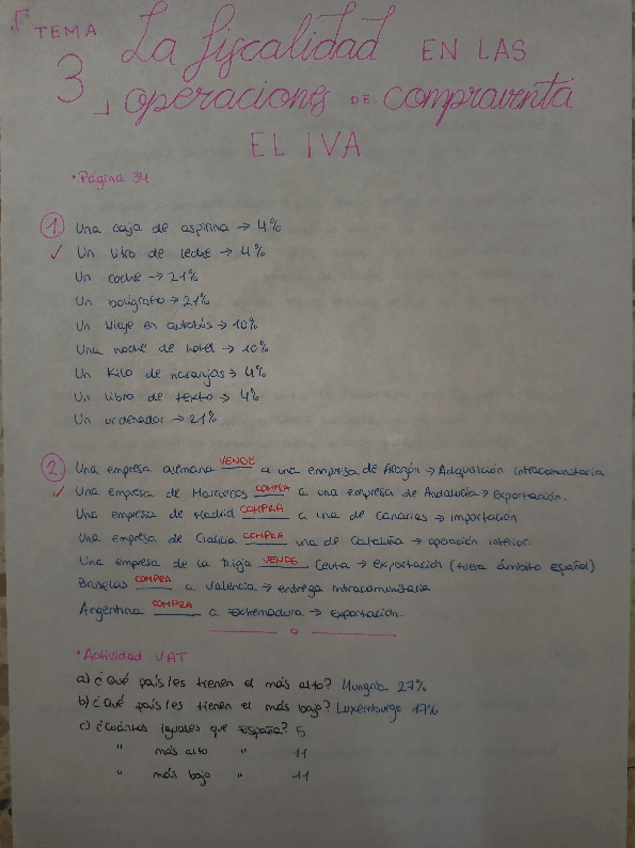 TEMA 3 La fiscalidad EN LAS
operaciones DE compraventa
EL IVA
• Página 34
1. Una caja de aspirina → 4%
✓ Un litro de leche → 4%
Un coche → 21%
Un bolígrafo → 21%
Un viaje en autobús → 10%
Una noche de hotel → 10%
Un kilo de naranjas → 4%
Un libro de texto → 4%
Un ordenador → 21%
2. Una empresa alemana VENDE a una empresa de Aragón → Adquisición intracomunitaria
✓ Una empresa de Marruecos COMPRA a una empresa de Andalucía → Exportación.
Una empresa de Madrid COMPRA a una de Canarias → importación
Una empresa de Galicia COMPRA una de Cataluña → operación interior.
Una empresa de la Rioja VENDE Ceuta → exportación (fuera ámbito español)
Bruselas COMPRA a Valencia → entrega intracomunitaria
Argentina COMPRA a Extremadura → exportación.
• Actividad VAT
a) ¿Qué país/es tienen el más alto? Hungría 27%
b) ¿Qué país/es tienen el más bajo? Luxemburgo 17%
c) ¿Cuántos iguales que España? 5
" más alto " 11
" más bajo " 11